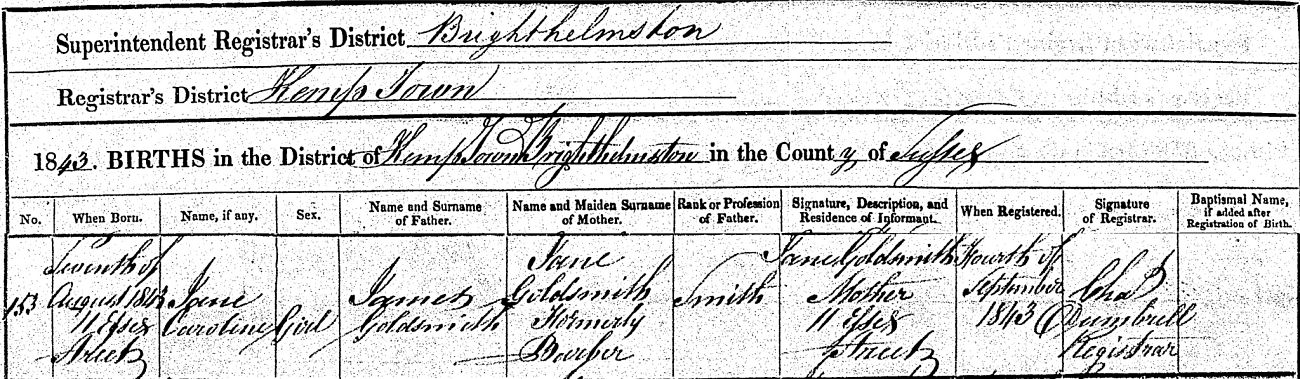 Superintendent Registrar's District Brighthelmston
Registrar's District Kemp Town
1843. BIRTHS in the District of Kemp Town Brighthelmston in the County of Sussex
No. When Born. Name, if any. Sex. Name and Surname of Father. Name and Maiden Surname of Mother. Rank or Profession of Father. Signature, Description, and Residence of Informant. When Registered. Signature of Registrar. Baptismal Name, if added after Registration of Birth.
153
Seventh of
August 1843
11 Essex
Street
Jane
Caroline
Girl
James
Goldsmith
Jane
Goldsmith
Formerly
Barber
Smith
Jane Goldsmith
Mother
11 Essex
Street
Fourth of
September
1843
Chas
Dumbrell
Registrar